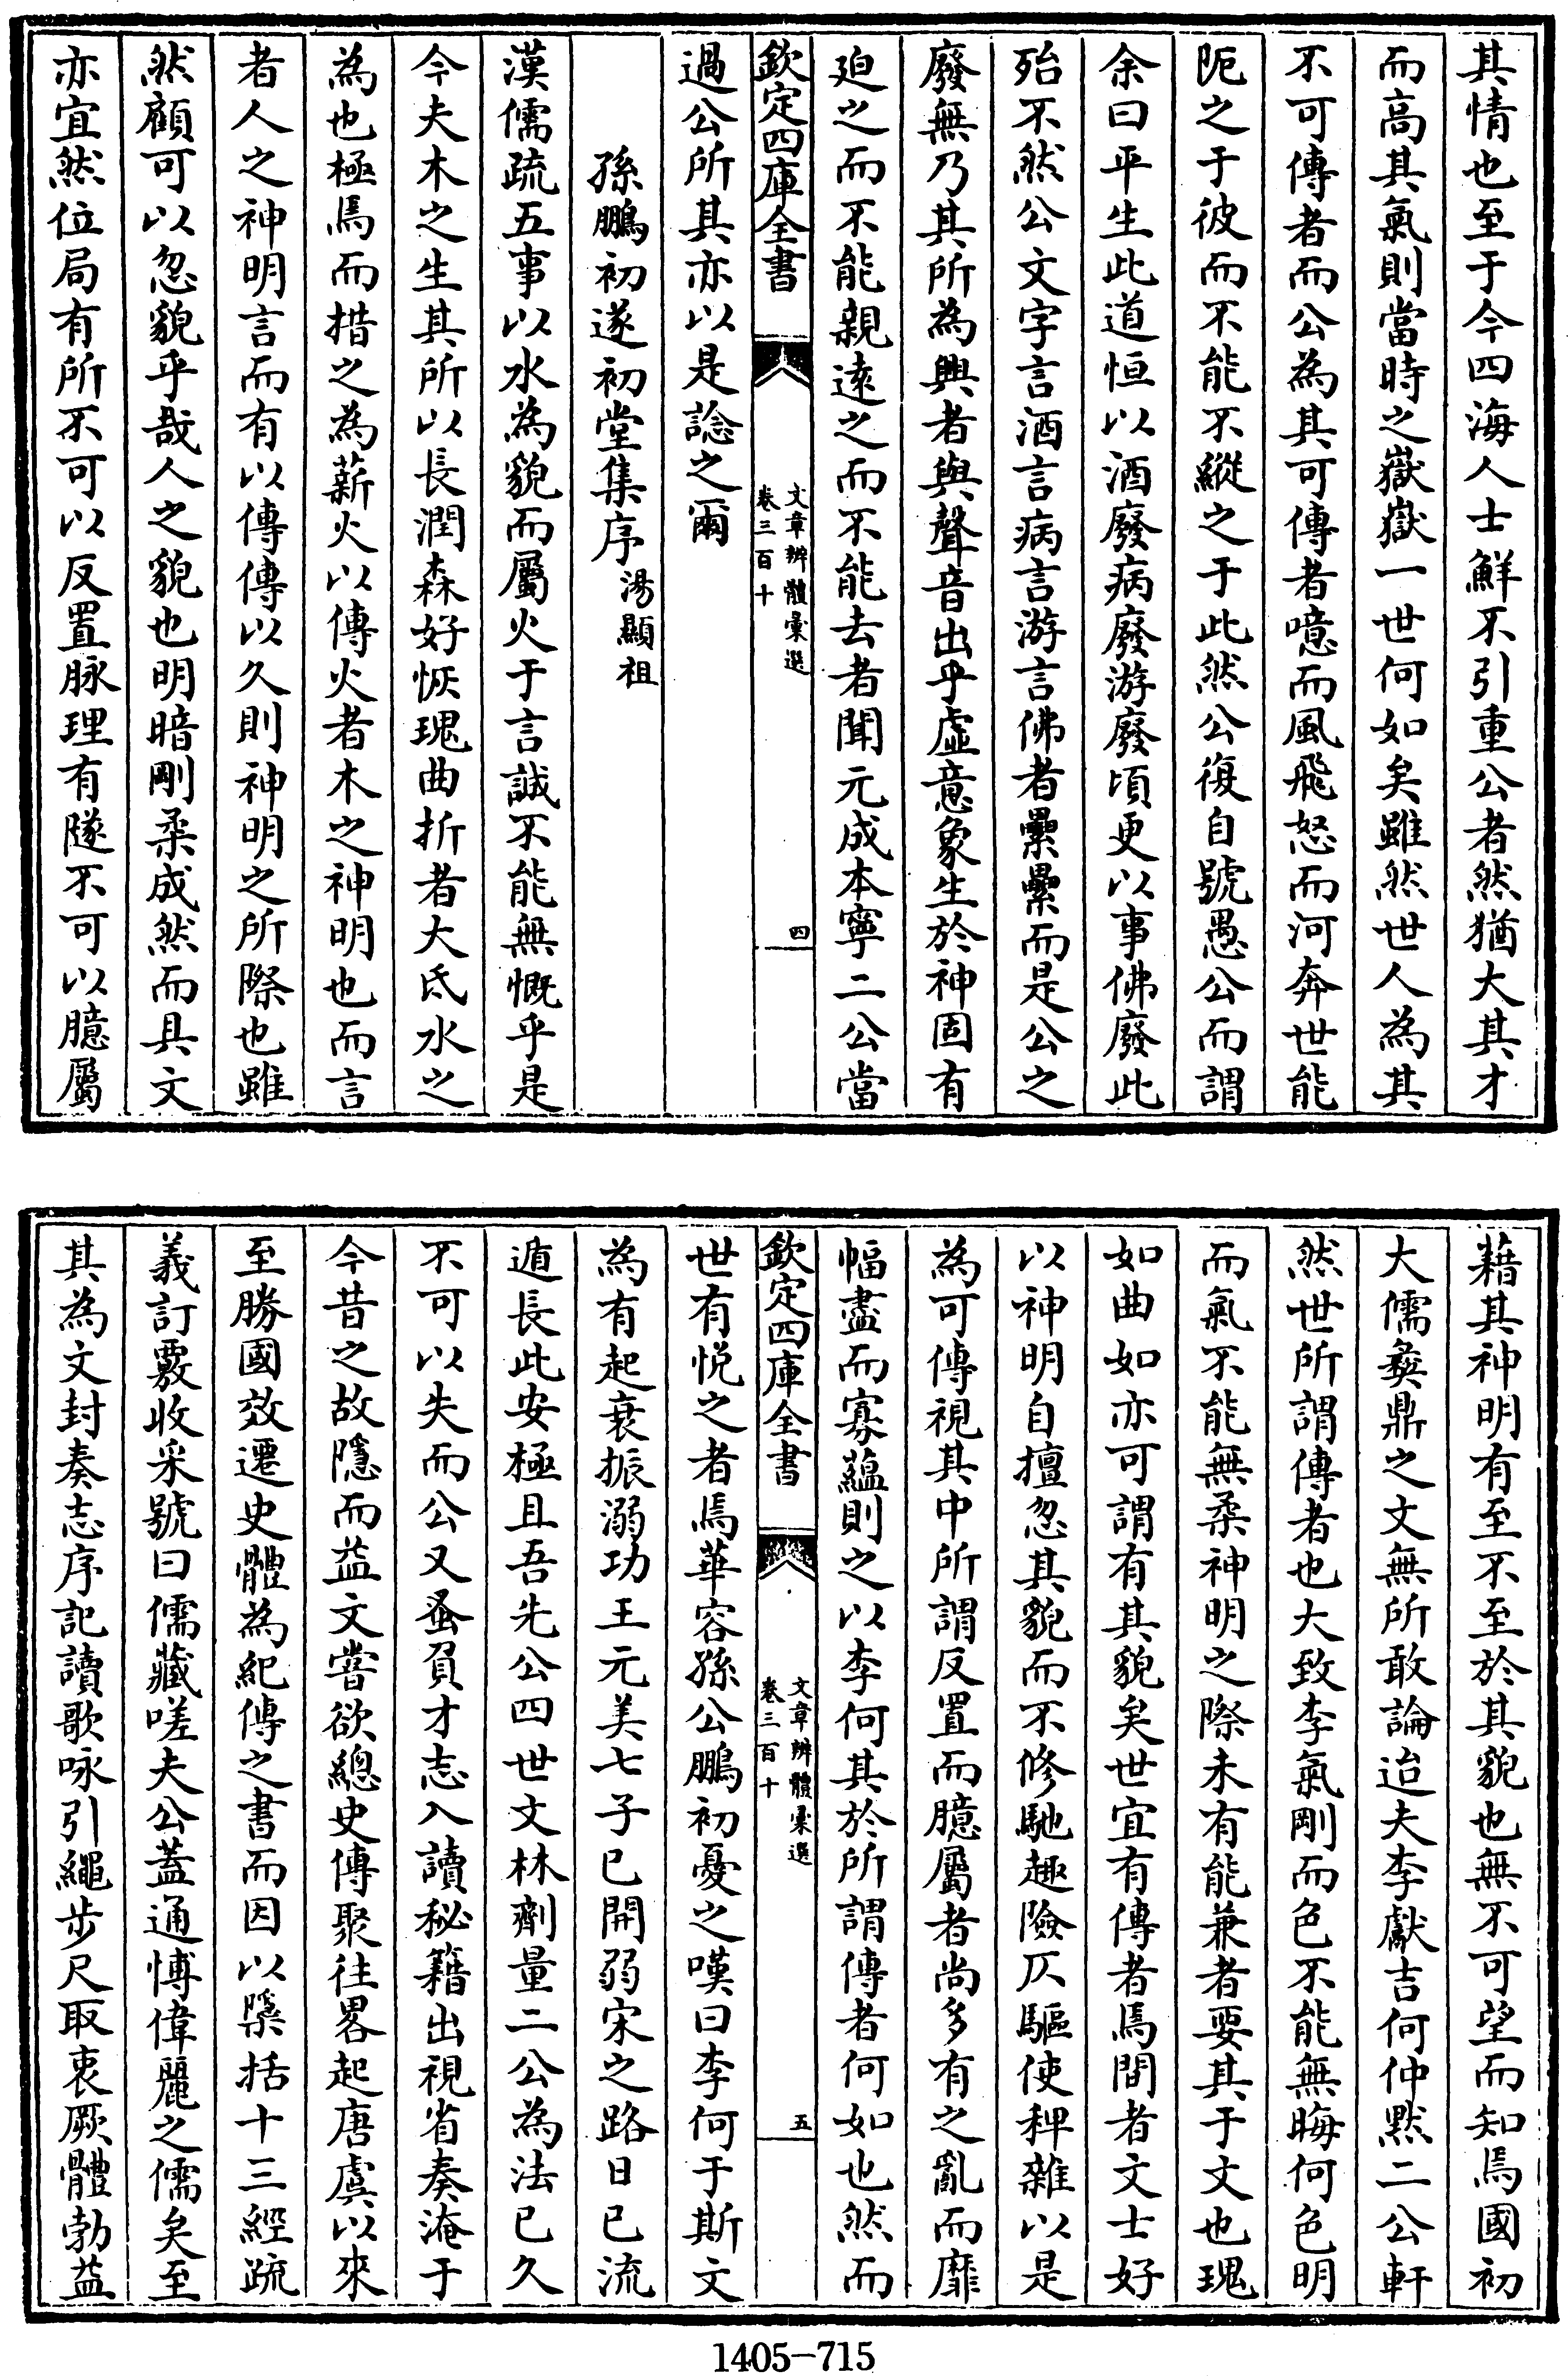 其情也至于今四海人士鮮不引重公者然猶大其才
而高其氣則當時之嶽嶽一世何如矣雖然世人為其
不可傳者而公為其可傳者噫而風飛怒而河奔世能
阨之于彼而不能不縱之于此然公復自號愚公而謂
余曰平生此道恒以酒廢病廢游廢頃更以事佛廢此
殆不然公文字言酒言病言游言佛者纍纍而是公之
廢無乃其所為興者與聲音出乎虛意象生於神固有
廹之而不能親逺之而不能去者聞元成本寧二公當
欽定四庫全書
文章辨體彚選
卷三百十
四
過公所其亦以是諗之爾
孫鵬初遂初堂集序湯顯祖
漢儒疏五事以水為貌而屬火于言誠不能無慨乎是
今夫木之生其所以長潤森好恢瑰曲折者大氐水之
為也極焉而措之為薪火以傳火者木之神明也而言
者人之神明言而有以傳傳以久則神明之所際也雖
然顧可以忽貌乎哉人之貌也明暗剛柔成然而具文
亦宜然位局有所不可以反置脉理有隧不可以臆屬
藉其神明有至不至於其貌也無不可望而知焉國初
大儒彞鼎之文無所敢論迨夫李獻吉何仲黙二公軒
然世所謂傳者也大致李氣剛而色不能無晦何色明
而氣不能無柔神明之際未有能兼者要其于文也瑰
如曲如亦可謂有其貌矣世宜有傳者焉間者文士好
以神明自擅忽其貌而不修馳趣險仄驅使稗雜以是
為可傳視其中所謂反置而臆屬者尚多有之亂而靡
幅盡而寡藴則之以李何其於所謂傳者何如也然而
欽定四庫全書
文章辨體彚選
卷三百十
五
世有悦之者焉華容孫公鵬初憂之嘆曰李何于斯文
為有起衰振溺功王元美七子已開弱宋之路日已流
遁長此安極且吾先公四世文林劑量二公為法已久
不可以失而公又蚤負才志入讀秘籍出視省奏淹于
今昔之故隱而益文嘗欲總史傳聚往畧起唐虞以來
至勝國效遷史體為紀傳之書而因以櫽括十三經疏
義訂覈收采號曰儒藏嗟夫公蓋通博偉麗之儒矣至
其為文封奏志序記讀歌咏引繩步尺取衷厥體勃益
1405-715